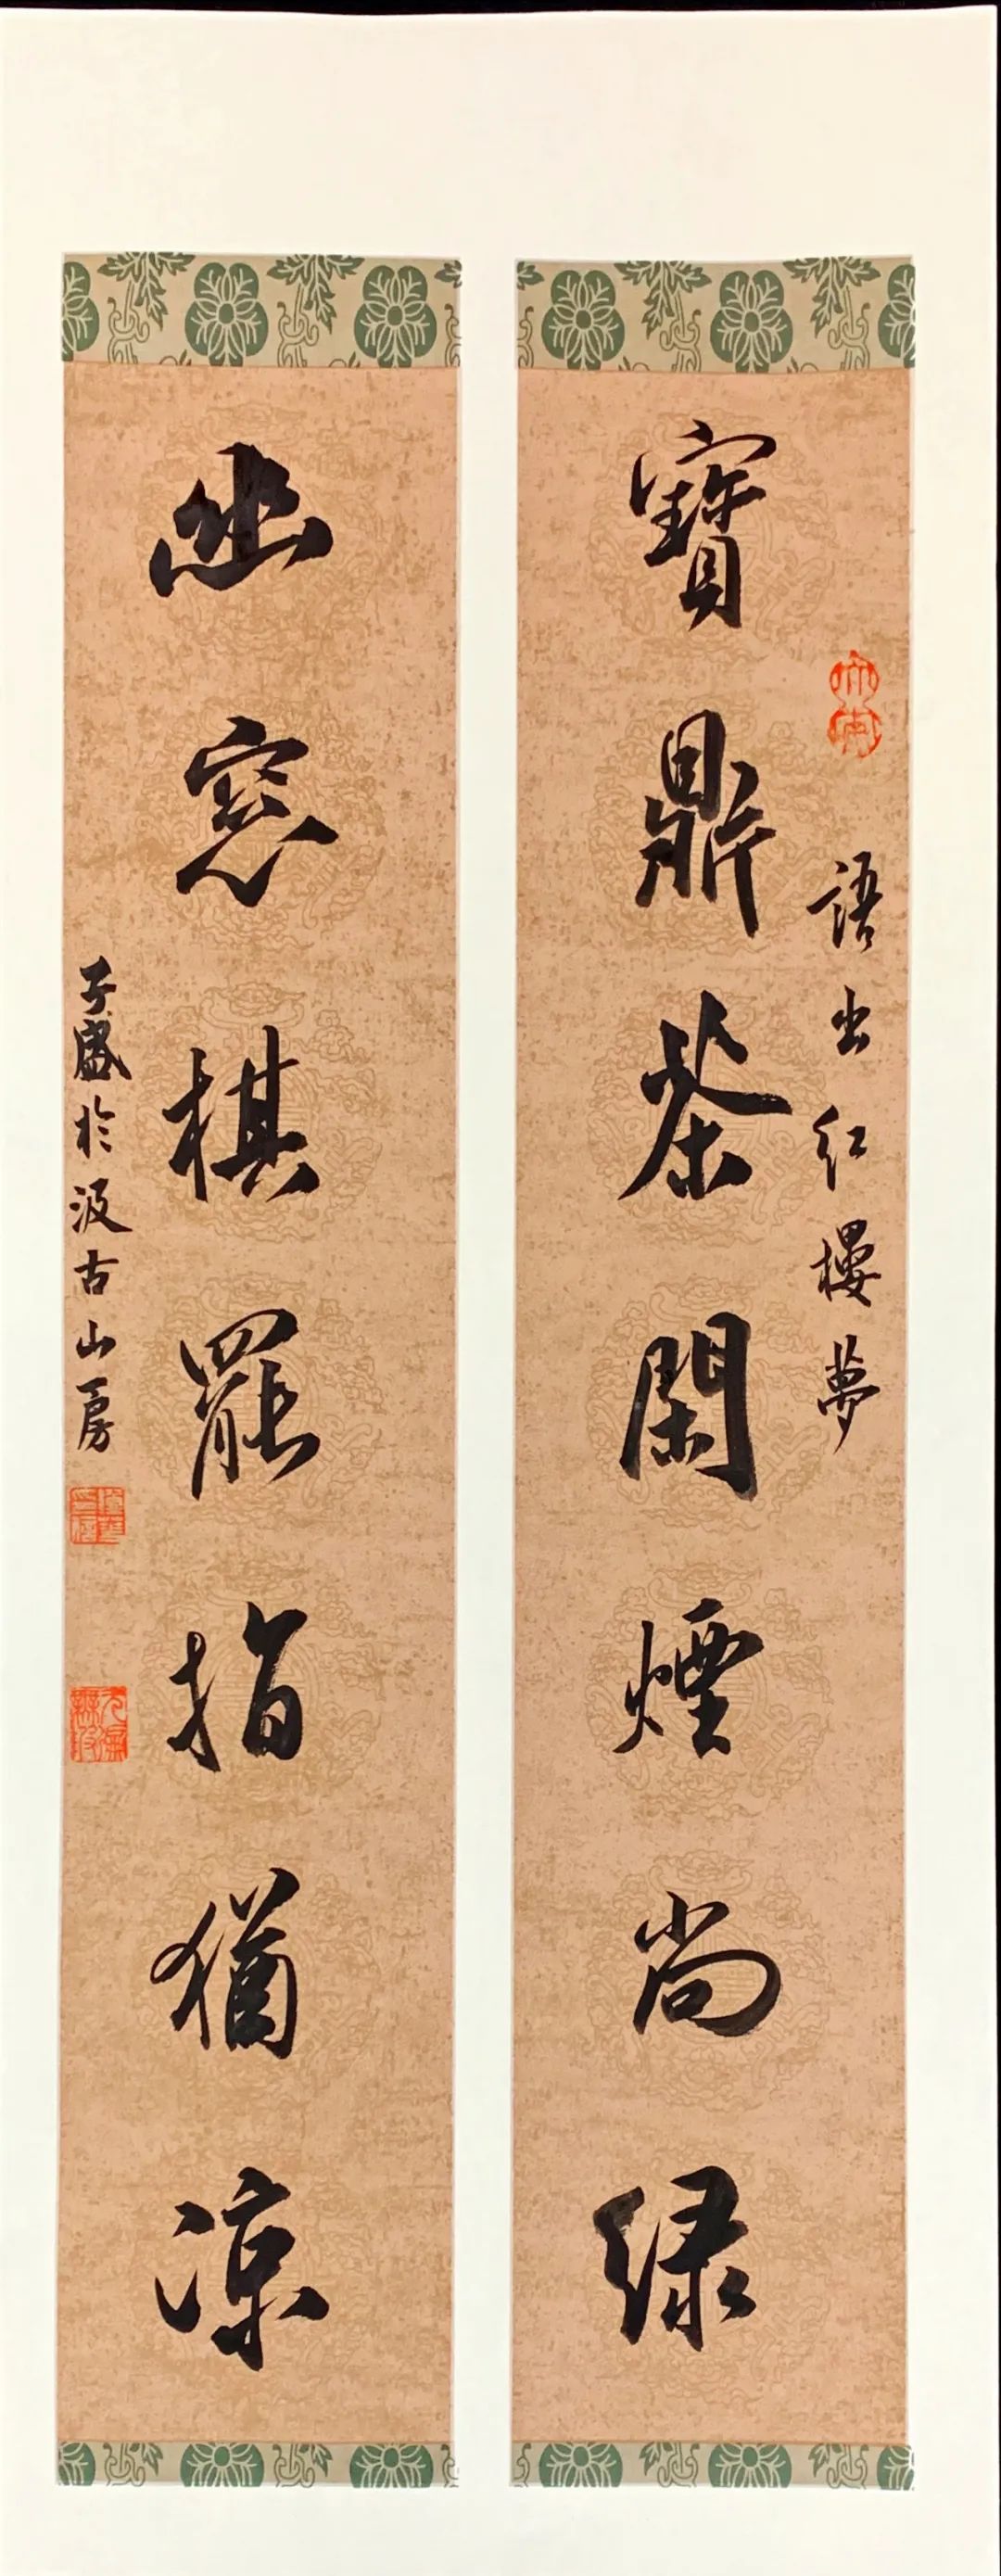 語出红樓夢
寶鼎茶閑煙尚绿
幽窓棋罷指猶涼
子盛於汲古山房